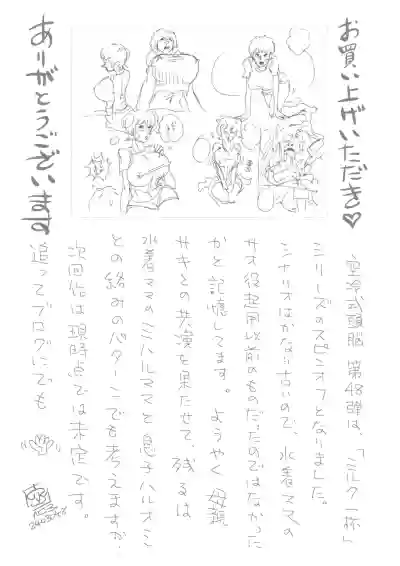 お買い上げいただき♡
ありがとうございます
空冷式頭脳 第48弾は、「ミルク一杯」
シリーズのスピンオフとなりました。
シナリオはかなり古いので、水着ママの
サオ役起用以前のものだったのではなかった
かと記憶してます。 ようやく 母親
サキとの共演を果たせて、残るは
水着ママのミハルママと息子ハルオミ
との絡みのパターンでも考えますが、
次回作は現時点では未定です。
追ってブログにでも